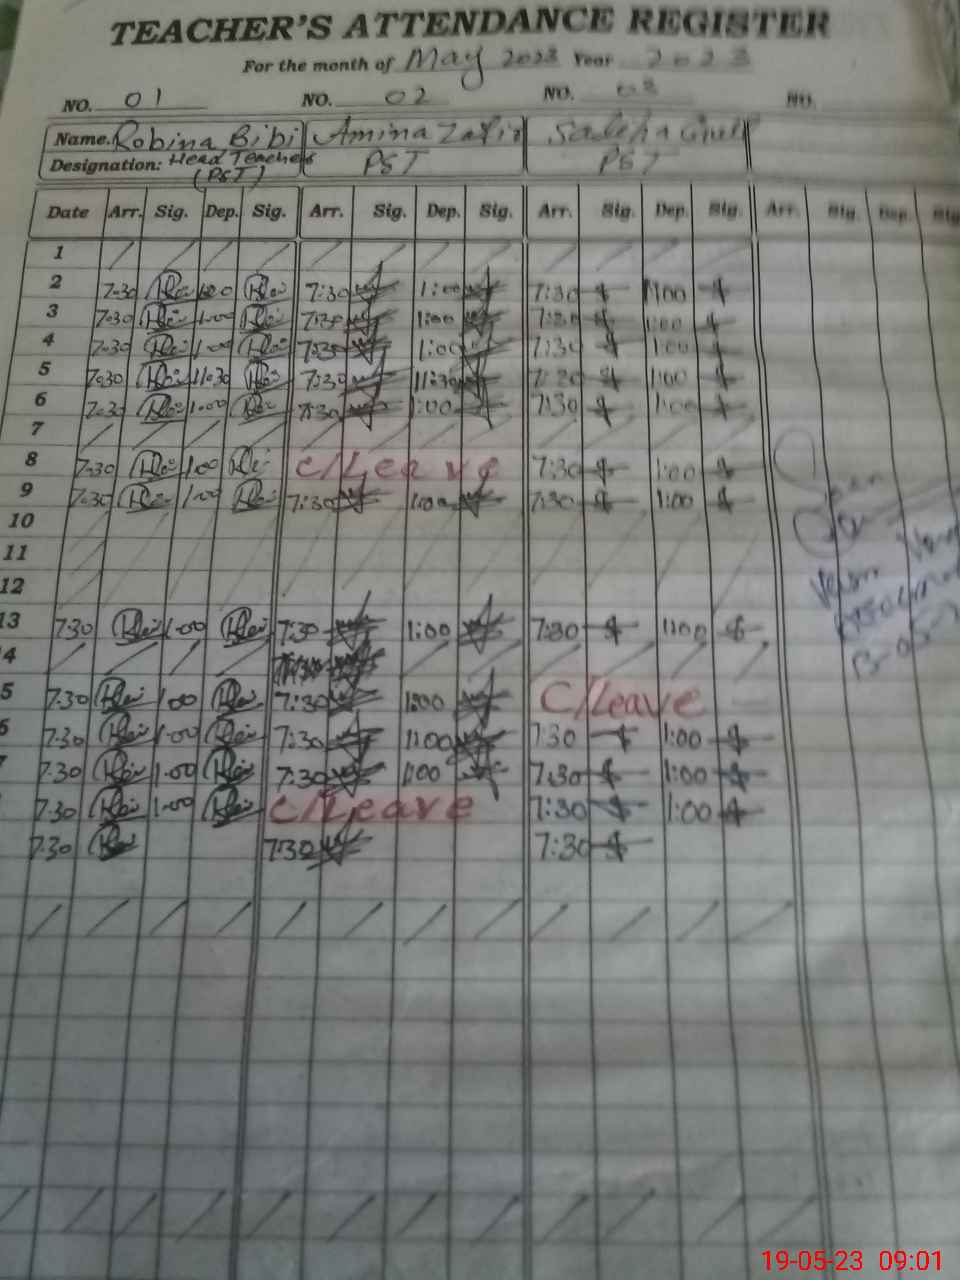 TEACHER'S ATTENDANCE REGISTER
For the month of May 2023 Year 2023
NO. 01 NO. 02 NO. 03 NO.
Name. Robina Bibi Amina Zafir Saleha Gul
Designation: Head Teacher PST PST
(PST)
Date Arr. Sig. Dep. Sig. Arr. Sig. Dep. Sig. Arr. Sig. Dep. Sig. Arr. Sig. Dep. Sig
1
2 7:30 1:00 7:30 1:00 7:30 1:00
3 7:30 1:00 7:30 1:00 7:30 1:00
4 7:30 1:00 7:30 1:00 7:30 1:00
5 7:30 11:30 7:30 11:30 7:30 1:00
6 7:30 1:00 7:30 1:00 7:30 1:00
7
8 7:30 1:00 C/Leave 7:30 1:00
9 7:30 1:00 7:30 1:00 7:30 1:00
10
11
12
13 7:30 1:00 7:30 1:00 7:30 1:00
4 7:30
5 7:30 1:00 7:30 1:00 C/Leave
6 7:30 1:00 7:30 1:00 7:30 1:00
7:30 1:00 7:30 1:00 7:30 1:00
7:30 1:00 C/Leave 7:30 1:00
7:30 7:30 7:30
19-05-23 09:01